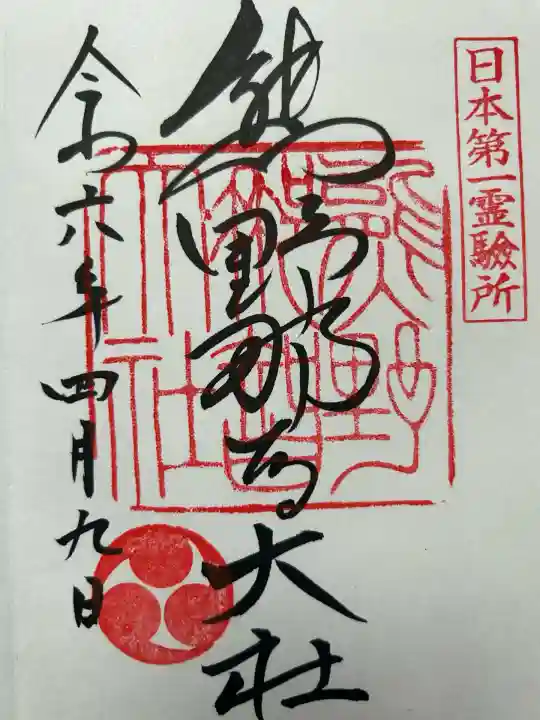 日本第一霊驗所
熊野那智大社
令和六年四月九日